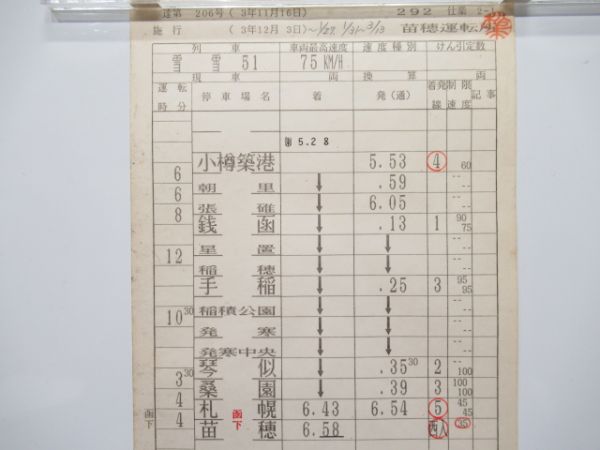 達第 206号 (3年11月16日) 292 仕業 2-1
施行 (3年12月 3日)~1/27. 1/31~3/13 苗穂運転
列車 車両最高速度 速度種別 けん引定数
雪 雪 51 75KM/H
現車 両 換算 両
運転時分 停車場名 着 発(通) 着発線 制限速度 記事
5.28
小樽築港 5.53 4 60
6
朝里 ↓ .59
6
張碓 ↓ 6.05
8
銭函 ↓ .13 1 90 75
星置 ↓ ↓
12
稲穂 ↓ ↓
手稲 ↓ .25 3 95 95
稲積公園 ↓ ↓
10 30
発寒 ↓ ↓
発寒中央 ↓ ↓
琴似 ↓ .35 30 2 100
3 30
桑園 ↓ .39 3 100 100
4
函下 札幌 函下 6.43 6.54 5 45 45
4
苗穂 6.58 西入 35